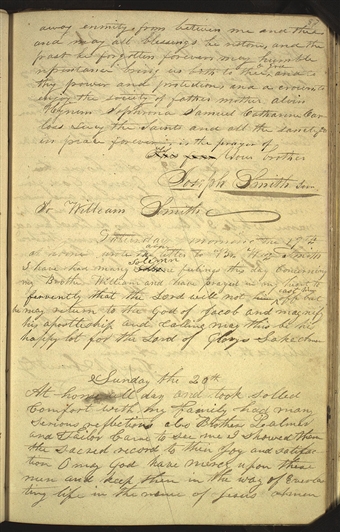 away enmity from between me and thee
and may all blessings be restored, and the
past be forgotten forever may humble
repentance bring us both to thee, and to
thy power and protection, and a crown to
enjoy the society of father mother alvin
Hyrum Sophronia Samuel Catharine Car
los Lucy the Saints and all the sanctified
in peace forever, is the prayer of
your brother
Joseph Smith Jun
To William Smith
Saturday morning the 19th
at home wrote the letter to Wm Smith
I have had many solemn feelings this day concerning
my Brother William and have prayed in my heart to
fervently that the Lord will not him off but
may return to the God of Jacob and magnify
his apostleship and calling may this be his
happy lot for the Lord of Glorys Sake Amen
Sunday the 20th
At home all day and took solled
Comfort with my Family had many
serious reflections also Brother Palmer
and Tailor Came to see me I showed them
the sacred record to their Joy and satisfac
tion O may God have mercy upon these
men and keep them in the way of Everlas
ting life in the name of Jesus Amen